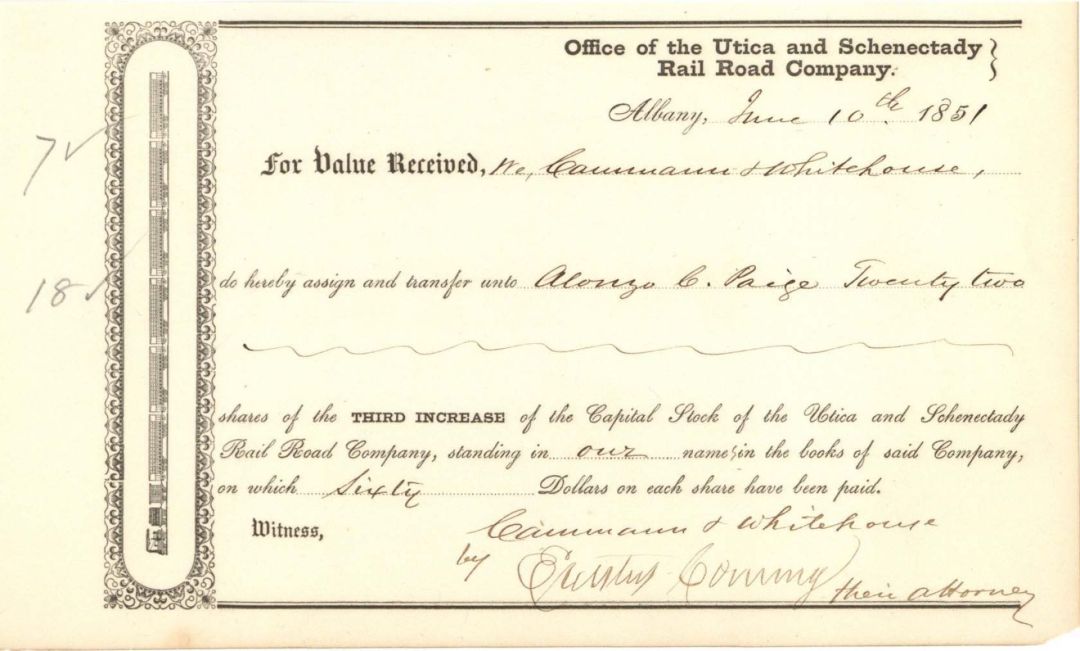 Office of the Utica and Schenectady
Rail Road Company.
Albany, June 10th 1851
7✓
For Value Received, We, Cammann & Whitehouse,
18✓
do hereby assign and transfer unto Alonzo C. Paige Twenty two
shares of the THIRD INCREASE of the Capital Stock of the Utica and Schenectady
Rail Road Company, standing in our names in the books of said Company,
on which Sixty Dollars on each share have been paid.
Witness, Cammann & Whitehouse
by Erastus Corning
their attorney